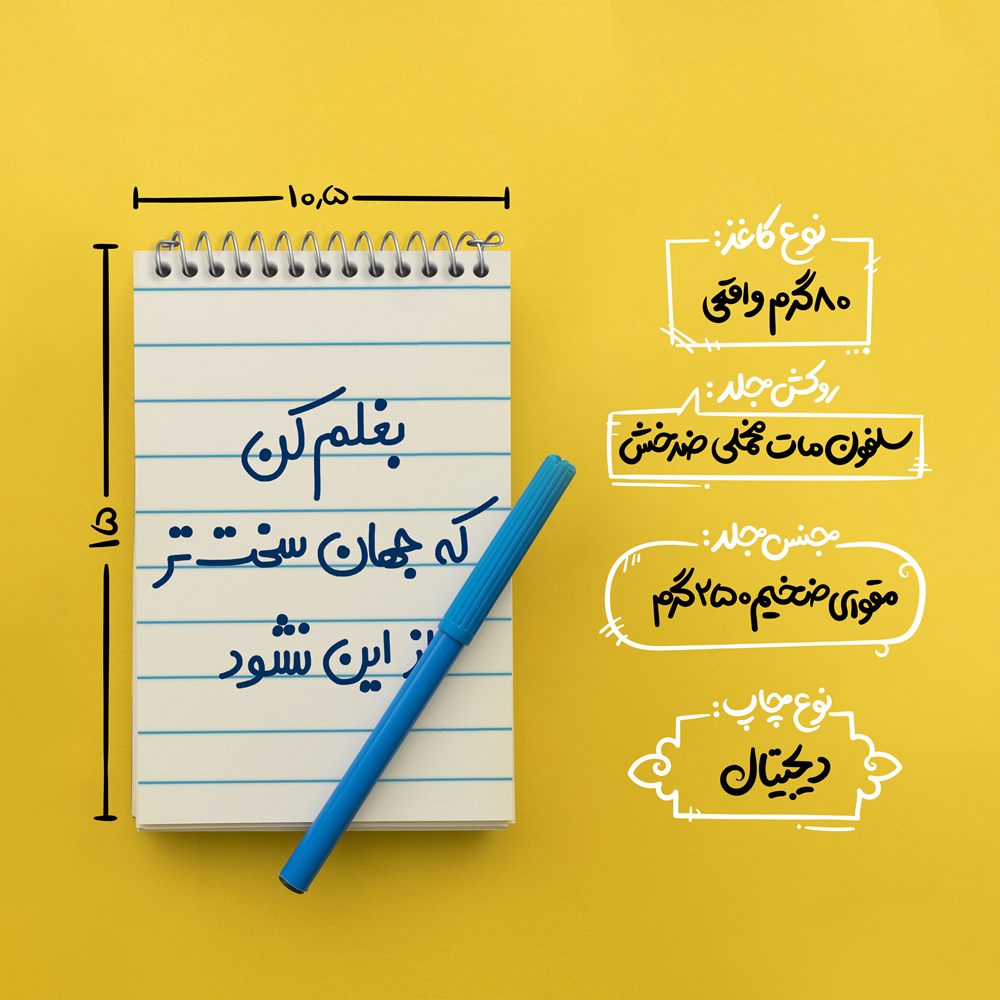 ۱۰٫۵
۱۵
بغلم کن
که جهان سخت تر
از این نشود
نوع کاغذ:
۸۰ گرم واقعی
روکش جلد:
سلفون مات مخملی ضدخش
جنس جلد:
مقوای ضخیم ۲۵۰ گرم
نوع چاپ:
دیجیتال